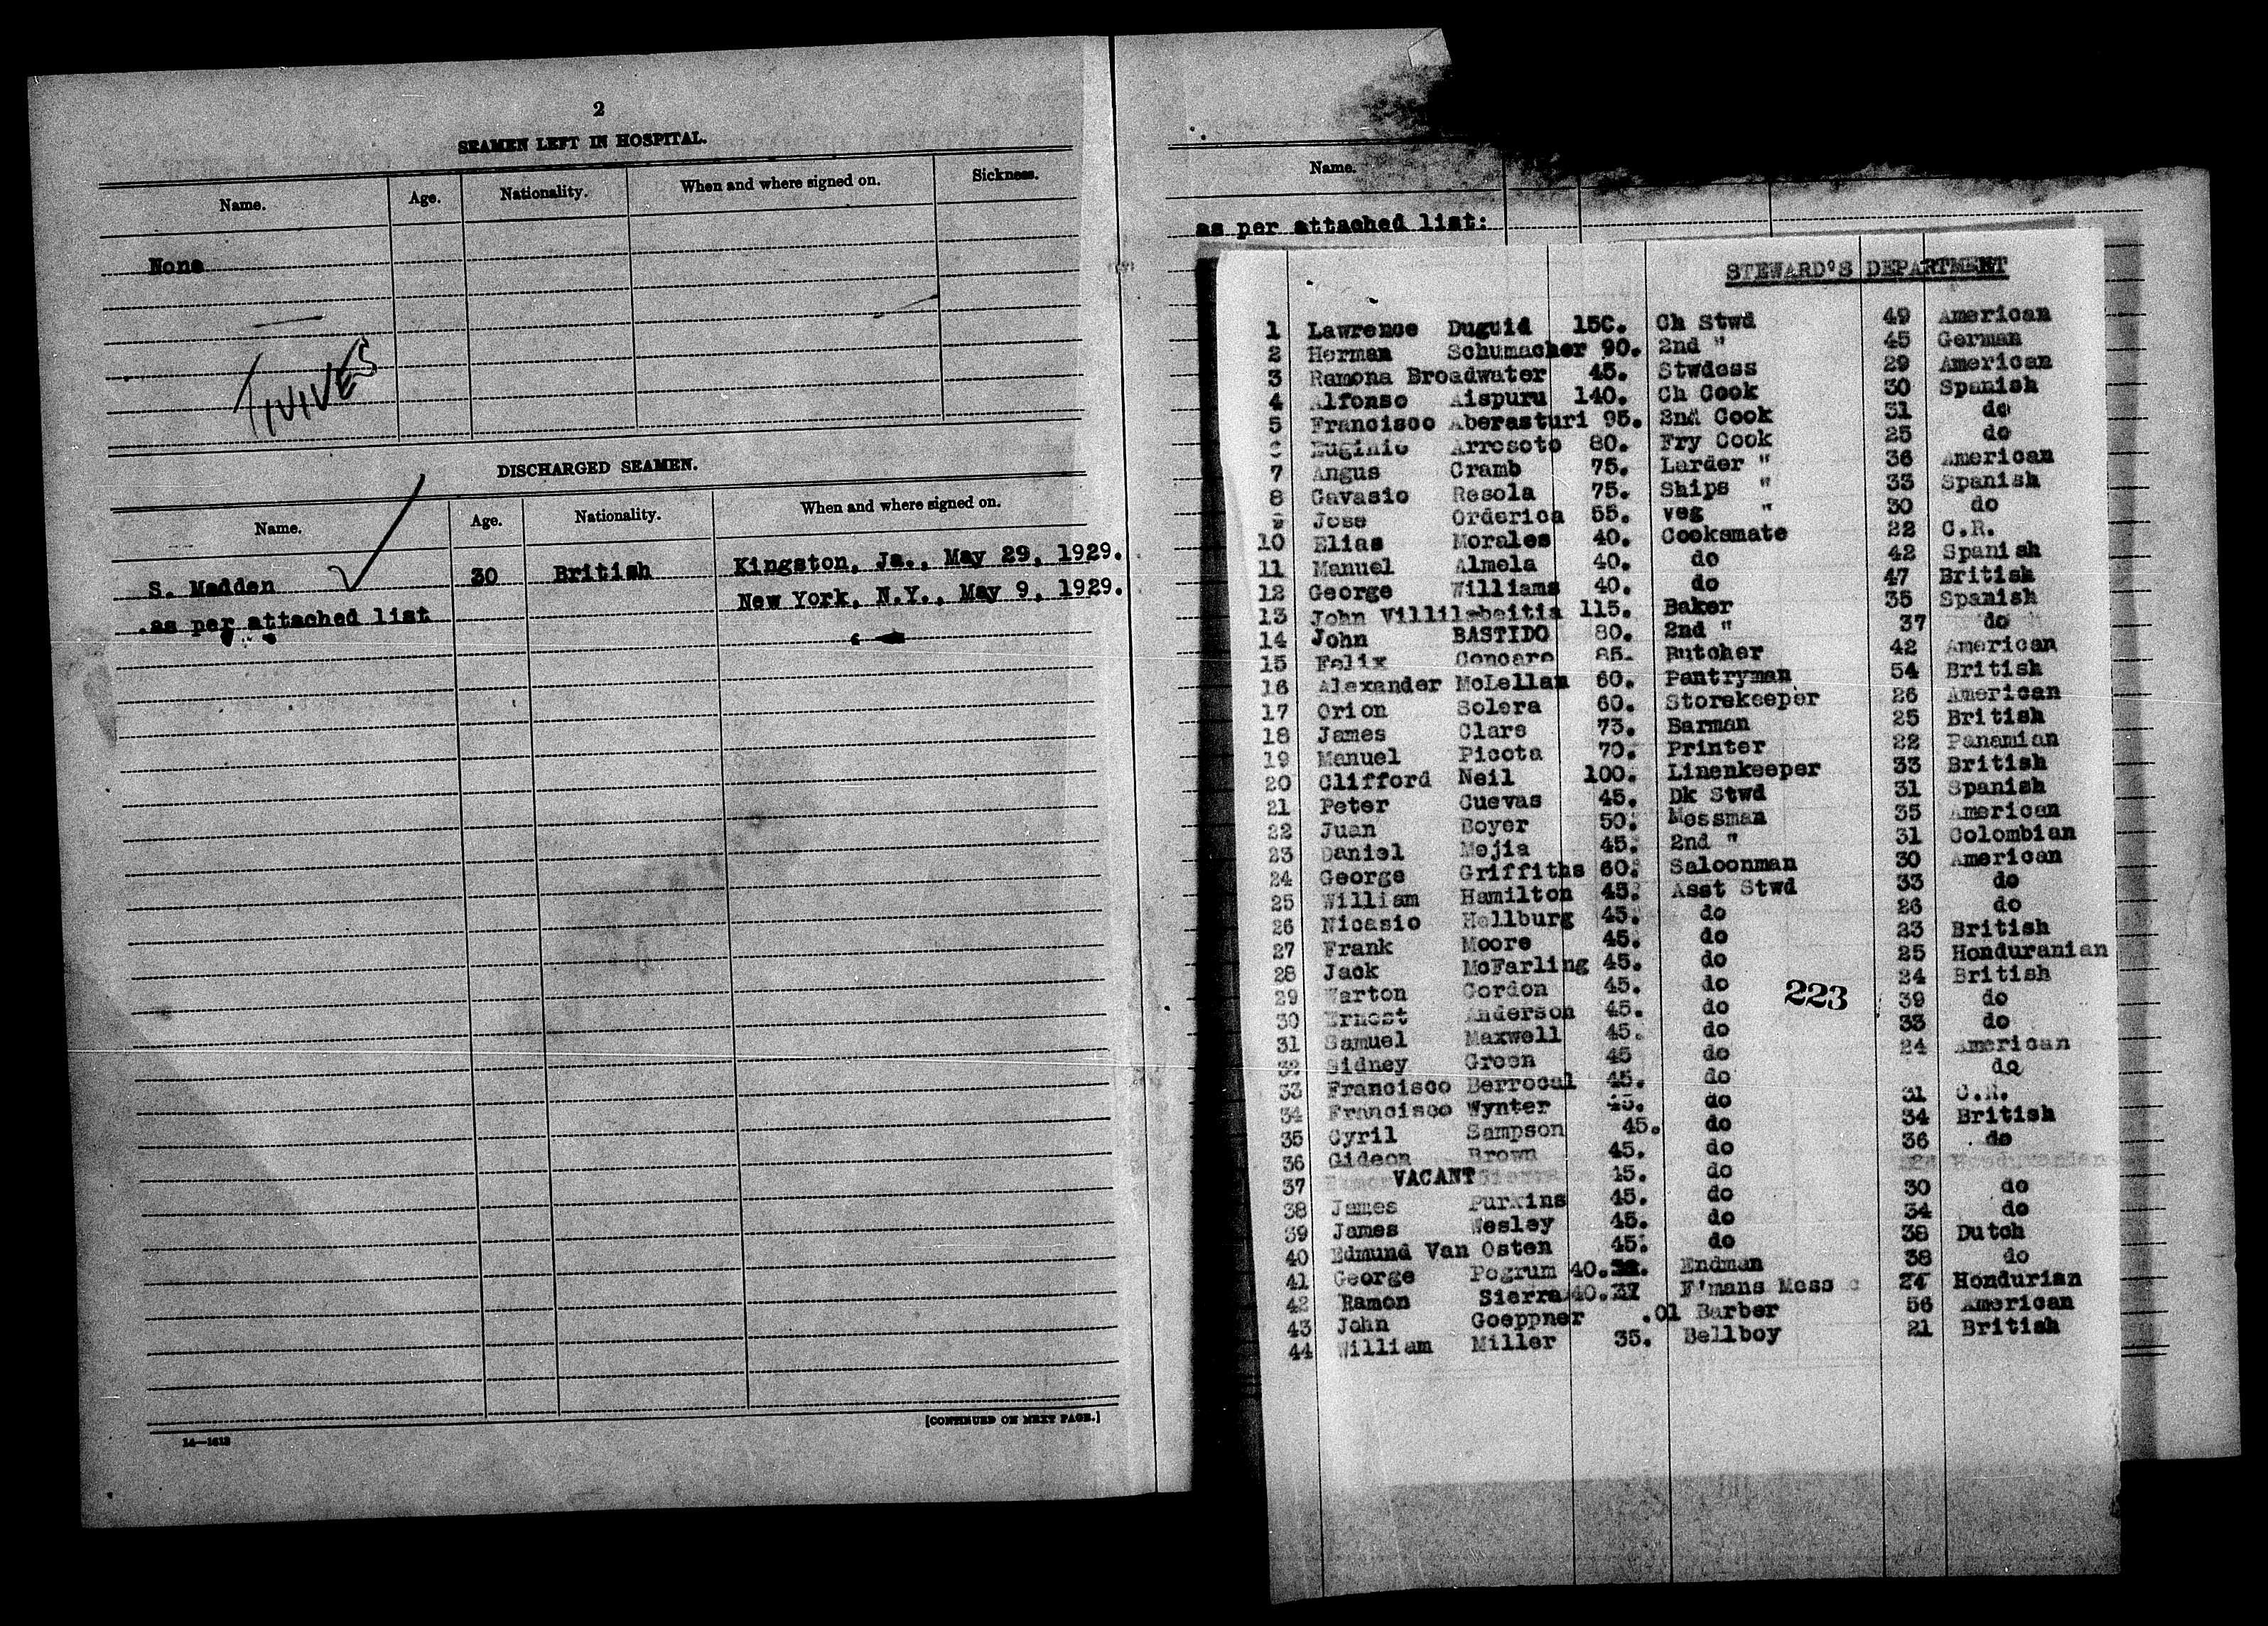 2
SEAMEN LEFT IN HOSPITAL.
Name. Age. Nationality. When and where signed on. Sickness.
None
TIVIVES
DISCHARGED SEAMEN.
Name. Age. Nationality. When and where signed on.
S. Madden 30 British Kingston, Ja., May 29, 1929.
as per attached list New York, N.Y., May 9, 1929.
[CONTINUED ON NEXT PAGE.]
14—1613
Name.
as per attached list:
STEWARD'S DEPARTMENT
1 Lawrence Duguid 150. Ch Stwd 49 American
2 Herman Schumacher 90. 2nd " 45 German
3 Ramona Broadwater 45. Stwdess 29 American
4 Alfonso Aispuru 140. Ch Cook 30 Spanish
5 Francisco Aberasturi 95. 2nd Cook 31 do
6 Euginio Arrosoto 80. Fry Cook 25 do
7 Angus Cramb 75. Larder " 36 American
8 Gavasio Resola 75. Ships " 33 Spanish
9 Jose Orderica 55. veg " 30 do
10 Elias Morales 40. Cooksmate 22 C.R.
11 Manuel Almela 40. do 42 Spanish
12 George Williams 40. do 47 British
13 John Villilabeitia 115. Baker 35 Spanish
14 John BASTIDO 80. 2nd " 37 do
15 Felix Goncare 85. Butcher 42 American
16 Alexander McLellan 60. Pantryman 54 British
17 Orion Solera 60. Storekeeper 26 American
18 James Clare 75. Barman 25 British
19 Manuel Picota 70. Printer 22 Panamian
20 Clifford Neil 100. Linenkeeper 33 British
21 Peter Cuevas 45. Dk Stwd 31 Spanish
22 Juan Boyer 50. Messman 35 American
23 Daniel Mejia 45. 2nd " 31 Colombian
24 George Griffiths 60. Saloonman 30 American
25 William Hamilton 45. Asst Stwd 33 do
26 Nicasio Hellburg 45. do 26 do
27 Frank Moore 45. do 23 British
28 Jack McFarling 45. do 25 Honduranian
29 Warton Gordon 45. do 24 British
223
30 Ernest Anderson 45. do 39 do
31 Samuel Maxwell 45. do 33 do
32 Sidney Green 45 do 24 American
33 Francisco Berrocal 45. do do
34 Francisco Wynter 45. do 31 C.R.
35 Cyril Sampson 45. do 34 British
36 Gideon Brown 45. do 36 do
37 VACANT 45. do
38 James Purkins 45. do 30 do
39 James Wesley 45. do 34 do
40 Edmund Van Osten 45. do 38 Dutch
41 George Pogrum 40. Endman 38 do
42 Ramon Sierra 40.37 F'mans Mess 24 Hondurian
43 John Goeppner .01 Barber 56 American
44 William Miller 35. Bellboy 21 British